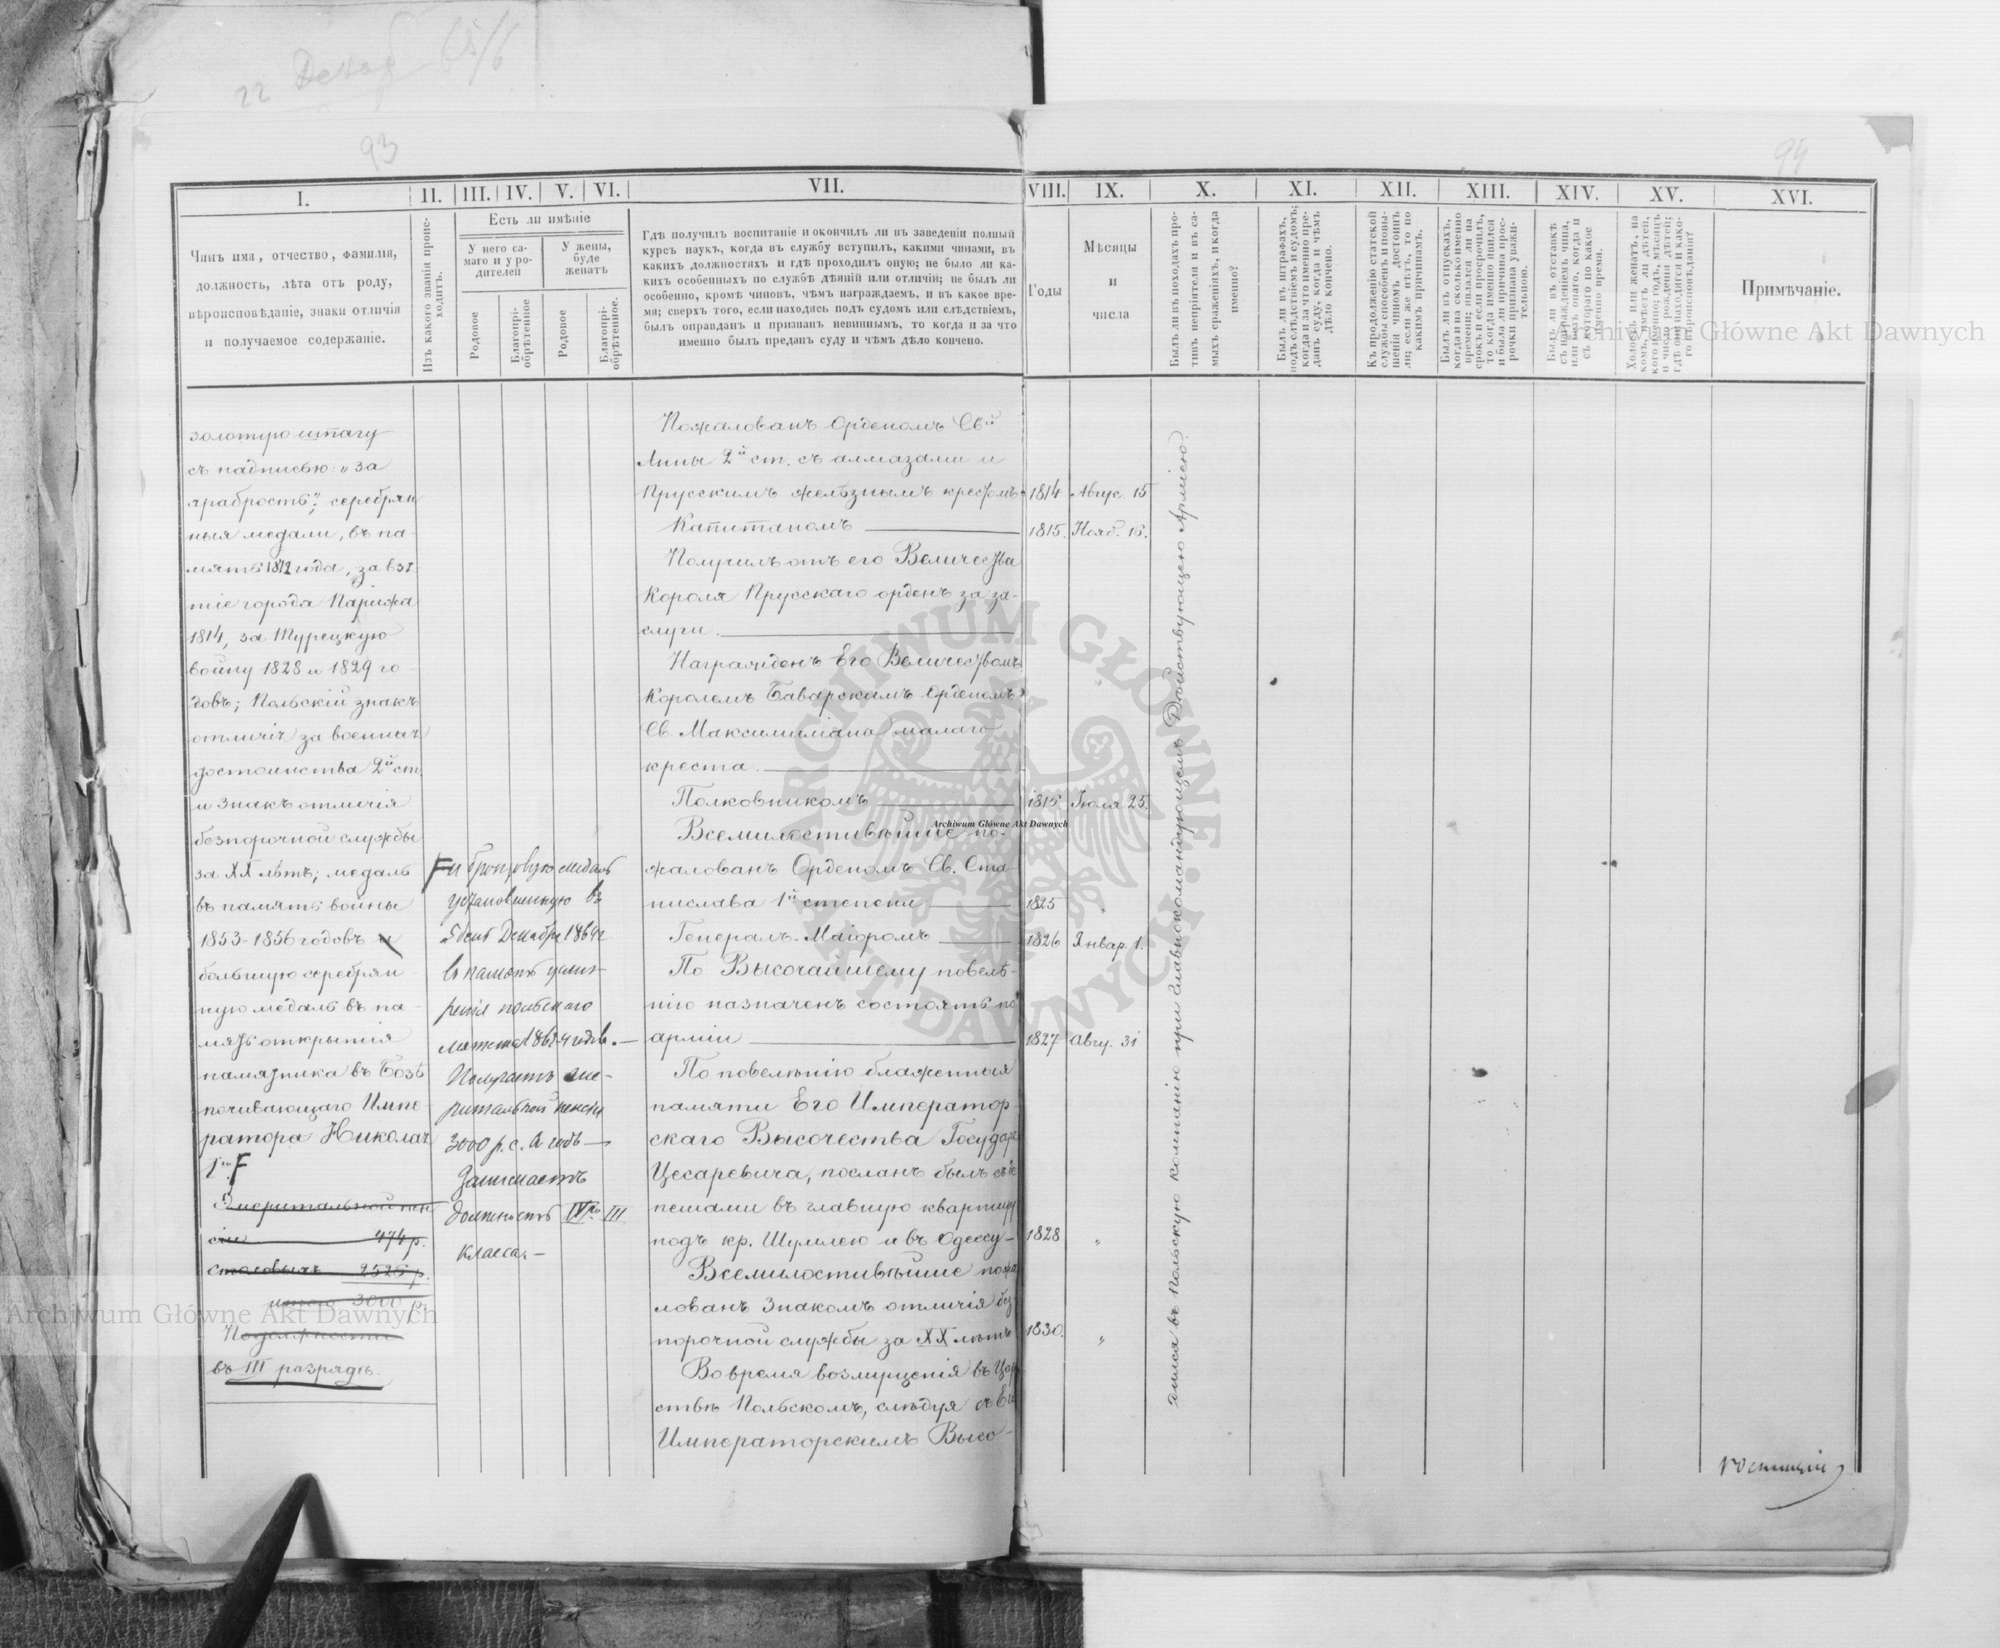 22 Декаб 65/6
93
94
I.
II.
III.
IV.
V.
VI.
VII.
VIII.
IX.
X.
XI.
XII.
XIII.
XIV.
XV.
XVI.
Чинъ имя, отчество, фамилія,
должность, лѣта отъ роду,
вѣроисповѣданіе, знаки отличія
и получаемое содержаніе.
Изъ какого званія проис-
ходитъ.
Есть ли имѣніе
У него са-
маго и у ро-
дителей
У жены,
буде
женатъ
Родовое
Благопрі-
обрѣтенное
Родовое
Благопрі-
обрѣтенное.
Гдѣ получилъ воспитаніе и окончилъ ли въ заведеніи полный
курсъ наукъ, когда въ службу вступилъ, какими чинами, въ
какихъ должностяхъ и гдѣ проходилъ оную; не было ли ка-
кихъ особенныхъ по службѣ дѣяній или отличій; не былъ ли
особенно, кромѣ чиновъ, чѣмъ награждаемъ, и въ какое вре-
мя; сверхъ того, если находясь подъ судомъ или слѣдствіемъ,
былъ оправданъ и признанъ невиннымъ, то когда и за что
именно былъ преданъ суду и чѣмъ дѣло кончено.
Годы
Мѣсяцы
и
числа
Былъ ли въ походахъ про-
тивъ непріятеля и въ са-
мыхъ сраженіяхъ, и когда
именно?
Былъ ли въ штрафахъ,
подъ слѣдствіемъ и судомъ;
когда и за что именно пре-
данъ суду, когда и чѣмъ
дѣло кончено.
Къ продолженію статской
службы способенъ и повы-
шенія чиномъ достоинъ
ли; если же нѣтъ, то по
какимъ причинамъ.
Былъ ли въ отпускахъ,
когда и на сколько именно
времени; явился ли на
срокъ и если просрочилъ,
то когда именно явился
и была ли причина прос-
рочки признана уважи-
тельною.
Былъ ли въ отставкѣ
съ награжденіемъ чина,
или безъ онаго, когда и
съ котораго по какое
именно время.
Холостъ или женатъ, на
комъ, имѣетъ ли дѣтей,
кого именно; годъ, мѣсяцъ
и число рожденія дѣтей;
гдѣ они находятся и како-
го вѣроисповѣданія?
Примѣчаніе.
золотую шпагу
съ надписью: „за
храбрость“; серебрян
ныя медали, въ па-
мять 1812 года, за взя-
тіе города Парижа
1814, за Турецкую
войну 1828 и 1829 го-
довъ; Польскій знакъ
отличія за военныя
достоинства 2й ст.
и Знакъ отличія
безпорочной службы
за XX лѣтъ; медаль
въ память войны
1853-1856 годовъ и
большую серебрян-
ную медаль въ па-
мять открытія
памятника въ Бозѣ
почивающаго Импе-
ратора Николая
1го F
Эмеритальной пен
сіи 474 р.
столовыхъ 2526 р.
итого 3000 р.
По должности
въ III разрядѣ.
F и бронзовую медаль
установленную въ
1864 г.
въ память усми-
ренія польскаго
мятежа 1863/4 годовъ.—
Получаетъ эме-
ритальной пенсіи
3000 р. с. въ годъ —
Занимаетъ
должность IV III
класса.—
Пожалованъ Орденомъ Свй
Анны 2й ст. съ алмазами и
Прусскимъ желѣзнымъ крестомъ 1814 Авгус. 15
Капитаномъ 1815. Нояб. 16.
Получилъ отъ его Величества
Короля Прусскаго орденъ за за-
слуги.
Награжденъ Его Величествомъ
Королемъ Баварскимъ Орденомъ
Св. Максимиліана малаго
креста.
Полковникомъ Іюля 25.
Всемилостивѣйше по-
жалованъ Орденомъ Св. Ста
нислава 1й степени 1825 „
Генералъ-Маіоромъ 1826 Январ. 1.
По Высочайшему повелѣ-
нію назначенъ состоять по
арміи 1827 Авгу. 31
По повелѣнію блаженныя
памяти Его Император-
скаго Высочества Государя
Цесаревича, посланъ былъ съ де
пешами въ главную квартиру
подъ кр. Шумлею и въ Одессу— 1828 „
Всемилостивѣйше пожа
лованъ Знакомъ отличія без-
порочной службы за XX лѣтъ 1830. „
Во время возмущенія въ Цар
ствѣ Польскомъ, слѣдуя съ Его
Императорскимъ Высо-
въ Польскую компанію при Главнокомандующемъ Дѣйствующею Арміею.
Archiwum Główne Akt Dawnych
Archiwum Główne Akt Dawnych
Archiwum Główne Akt Dawnych
ARCHIWUM GŁÓWNE AKT DAWNYCH